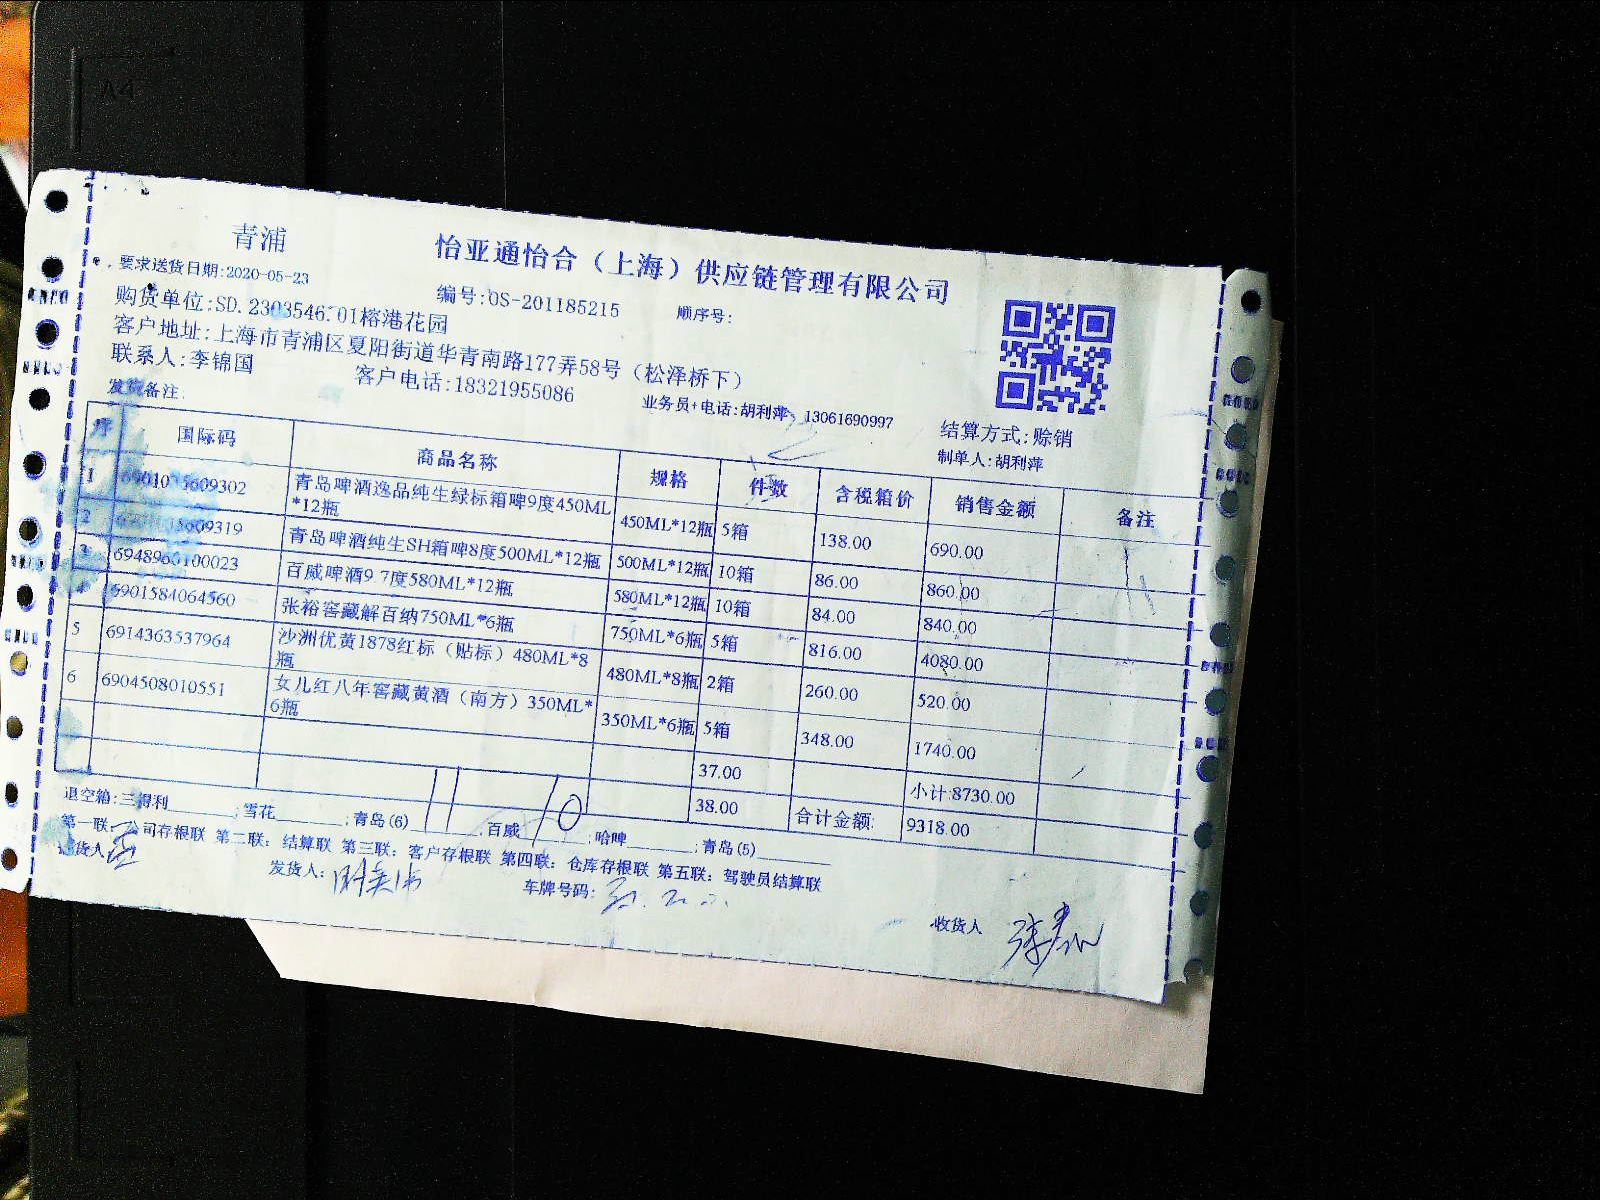 A4
青浦
怡亚通怡合（上海）供应链管理有限公司
要求送货日期:2020-05-23
编号:OS-201185215 顺序号:
购货单位:SD.2303546.01榕港花园
客户地址:上海市青浦区夏阳街道华青南路177弄58号（松泽桥下）
联系人:李锦国 客户电话:18321955086
业务员+电话:胡利萍、13061690997
结算方式:赊销
发货备注:
制单人:胡利萍
序 国际码 商品名称 规格 件数 含税箱价 销售金额 备注
1 青岛啤酒逸品纯生绿标箱啤9度450ML*12瓶 450ML*12瓶 5箱 138.00 690.00
2 青岛啤酒纯生SH箱啤8度500ML*12瓶 500ML*12瓶 10箱 86.00 860.00
3 百威啤酒9 7度580ML*12瓶 580ML*12瓶 10箱 84.00 840.00
6901584064560 张裕窖藏解百纳750ML*6瓶 750ML*6瓶 5箱 816.00 4080.00
5 6914363537964 沙洲优黄1878红标（贴标）480ML*8瓶 480ML*8瓶 2箱 260.00 520.00
6 6904508010551 女儿红八年窖藏黄酒（南方）350ML*6瓶 350ML*6瓶 5箱 348.00 1740.00
37.00 小计:8730.00
38.00 合计金额: 9318.00
退空箱:三得利 ;雪花 ;青岛(6) 11 ;百威 10 ;哈啤 ;青岛(5)
第一联:公司存根联 第二联: 结算联 第三联: 客户存根联 第四联: 仓库存根联 第五联: 驾驶员结算联
货人 发货人: 车牌号码: 收货人